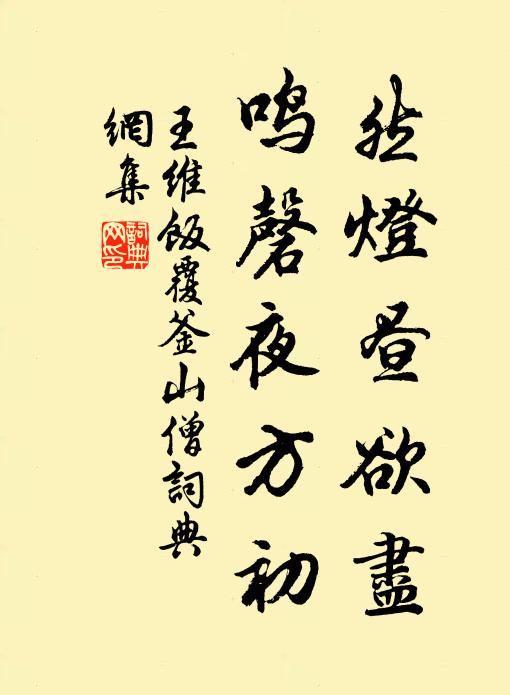 然燈昼欲盡
鳴磬夜方初
王維飯覆釜山僧詞典
網集
詞典
网印